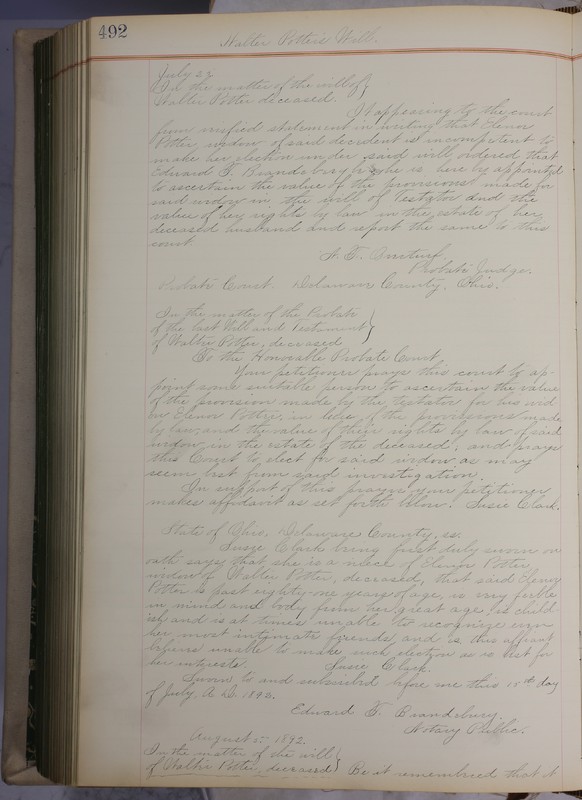 492
Walter Potter's Will.
July 27
In the matter of the will of
Walter Potter deceased.
It appearing to the court
from verified statement in writing that Elenor
Potter, widow of said decedent is incompetent to
make her election under said will, ordered that
Edward T. Brandebury he is hereby appointed
to ascertain the value of the provisions made for
said widow in the will of Testator and the
value of her rights by law in the estate of her
deceased husband and report the same to this
court.
Probate Judge.
Probate Court. Delaware County, Ohio.
In the matter of the Probate
of the last Will and Testament
of Walter Potter, deceased
To the Honorable Probate Court,
Your petitioner prays this court to ap-
point some suitable person to ascertain the value
of the provision made by the testator for his wid
ow Elenor Potter, in lieu of the provisions made
by law, and the value of their rights by law of said
widow in the estate of the deceased, and prays
this Court to elect for said widow as may
seem best from said investigation.
In support of this prayer your petitioner
makes affidavit as set forth below. Susie Clark.
State of Ohio, Delaware County, ss.
Susie Clark being first duly sworn on
oath says that she is a niece of Elenor Potter,
widow of Walter Potter, deceased, that said Elenor
Potter is past eighty-one years of age, is very feeble
in mind and body from her great age, is child
ish and is at times unable to recognize even
her most intimate friends, and is this affiant
believes unable to make such election as is best for
her interests. Susie Clark.
Sworn to and subscribed before me this 18th day
of July, A.D. 1892.
Edward T. Brandebury.
Notary Public.
August 5th 1892.
In the matter of the will
of Walter Potter, deceased Be it remembered that it